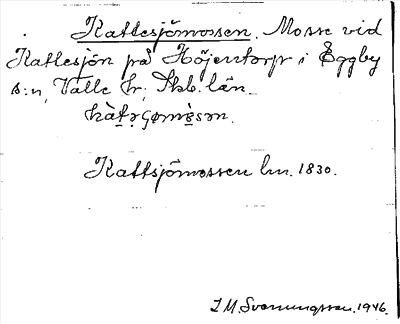 Kattesjömossen. Mosse vid
Kattesjön på Höjentorp i Eggby
s:n, Valle hr, Skb. län.
Kattsjömossen lm. 1830.
I. M. Svenungsson. 1946.